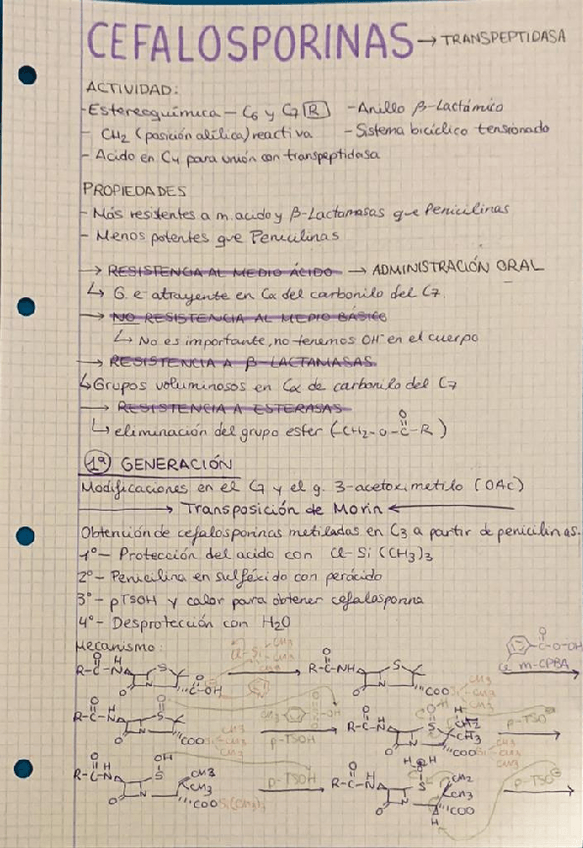 CEFALOSPORINAS → TRANSPEPTIDASA
ACTIVIDAD:
- Estereoquímica - C6 y C7 R - Anillo β-Lactámico
- CH2 (posición alílica) reactiva - Sistema bicíclico tensionado
- Acido en C4 para unión con transpeptidasa
PROPIEDADES
- Más resistentes a m. acido y β-Lactamasas que Penicilinas
- Menos potentes que Penicilinas
→ RESISTENCIA AL MEDIO ÁCIDO → ADMINISTRACIÓN ORAL
↳ G. e- atrayente en Cα del carbonilo del C7
→ NO RESISTENCIA AL MEDIO BÁSICO
↳ No es importante, no tenemos OH- en el cuerpo
→ RESISTENCIA A β-LACTAMASAS
↳ Grupos voluminosos en Cα de carbonilo del C7
→ RESISTENCIA A ESTERASAS
↳ eliminación del grupo ester (-CH2-O-C-R)
O
1ª GENERACIÓN
Modificaciones en el C7 y el g. 3-acetoximetilo (OAc)
→ Transposición de Morin ←
Obtención de cefalosporinas metiladas en C3 a partir de penicilinas.
1º- Protección del acido con Cl-Si(CH3)3
2º- Penicilina en sulfóxido con perácido
3º- pTSOH y calor para obtener cefalosporina
4º- Desprotección con H2O
Mecanismo:
R-C-NH
Cl-Si-CH3
C-OH
R-C-NH
COO
C-O-OH
Cl m-CPBA
R-C-NH
COO
p-TSOH
R-C-NH
CH2
CH3
COO
p-TSO
R-C-NH
OH
CH3
COO Si(CH3)3
p-TSOH
R-C-NH
CH2
CH3
COO
H
p-TSO